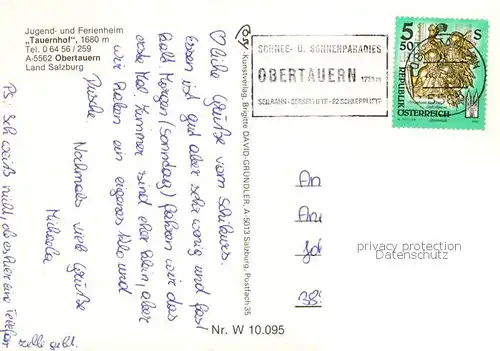 Jugend- und Ferienheim
„Tauernhof", 1680 m
Tel. 0 64 56 / 259
A-5562 Obertauern
Land Salzburg
SCHNEE- U. SONNENPARADIES
OBERTAUERN 1739m
SEILBAHN-SESSELLIFTE-22 SCHLEPPLIFTE
5 50 S
REPUBLIK ÖSTERREICH
Liebe Grüße vom Schikurs.
Essen ist gut aber sehr wenig und fast
kalt. Morgen (Sonntag) fahren wir das
erste Mal. Zimmer sind eher klein, aber
wir haben ein eigenes Klo und
Dusche. Nochmals viele Grüße
Michaela
Ps: Ich weiß nicht, ob es hier eine Telefon
zelle gibt.
Kunstverlag, Brigitte DAVID-GRÜNDLER, A-5013 Salzburg, Postfach 35
An
privacy protection
www.ansichtskarten-center.de
Nr. W 10.095